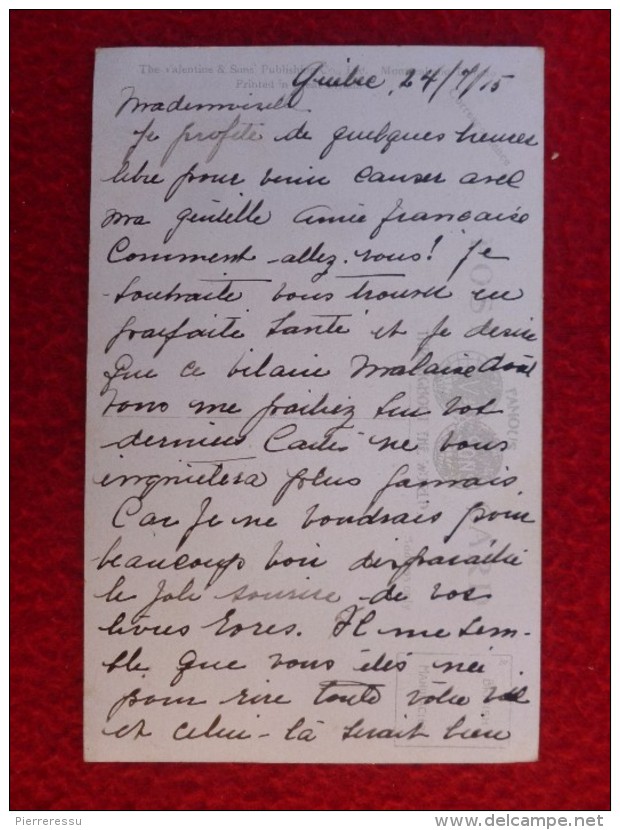 The Valentine & Sons Publishing Co., Ltd. Montreal
Printed in
Québec, 24/7/15
Mademoiselle
Je profite de quelques heures
libre pour venir causer avec
ma gentille Amie française
Comment allez-vous! Je
souhaite vous trouver en
parfaite santé et je desire
que ce vilain malaise dont
vous me parliez sur vos
dernières Cartes ne vous
inquietera plus jamais.
Car je ne voudrais pour
beaucoup voir disparaître
le joli sourire de vos
lèvres roses. Il me sem-
ble que vous êtes née
pour rire toute votre vie
et celui-là serait bien
FAMOUS
THROUGHOUT THE WORLD
Pierreressu
delcampe.net